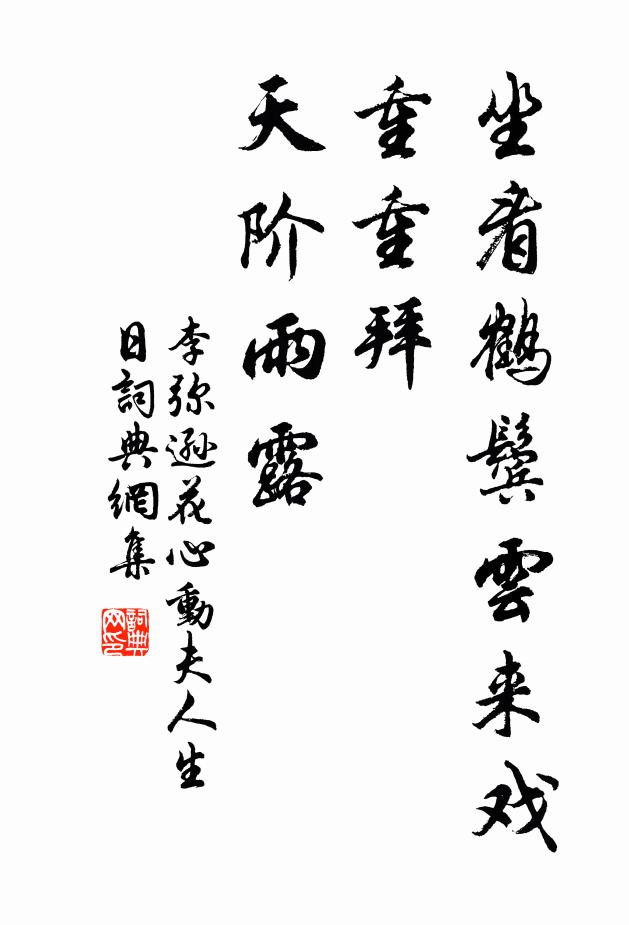 坐看鹤鬓雲来戏
重重拜
天阶雨露
李弥遜花心動夫人生
日詞典網集
詞典
网印